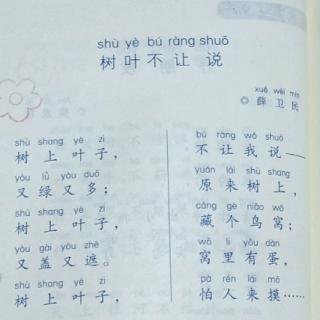 shù yè bú ràng shuō
树叶不让说
xuē wèi mín
◎薛卫民
shù shang yè zi
树上叶子，
yòu lǜ yòu duō
又绿又多；
shù shang yè zi
树上叶子，
yòu gài yòu zhē
又盖又遮。
shù shang yè zi
树上叶子，
bú ràng wǒ shuō
不让我说——
yuán lái shù shang
原来树上，
cáng gè niǎo wō
藏个鸟窝；
wō li yǒu dàn
窝里有蛋，
pà rén lái mō
怕人来摸……